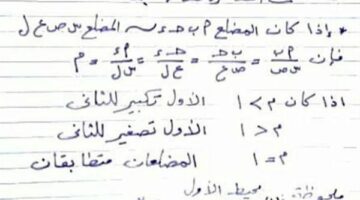 * إذا كان المضلع م ب ح ء ~ المضلع س ص ع ل
فإن م ب / س ص = ب ح / ص ع = ح ء / ع ل = م ء / س ل = م
اذا كان م > ١ الأول تكبير للثانى
م < ١ الأول تصغير للثانى
م = ١ المضلعان متطابقان
محيط الأول